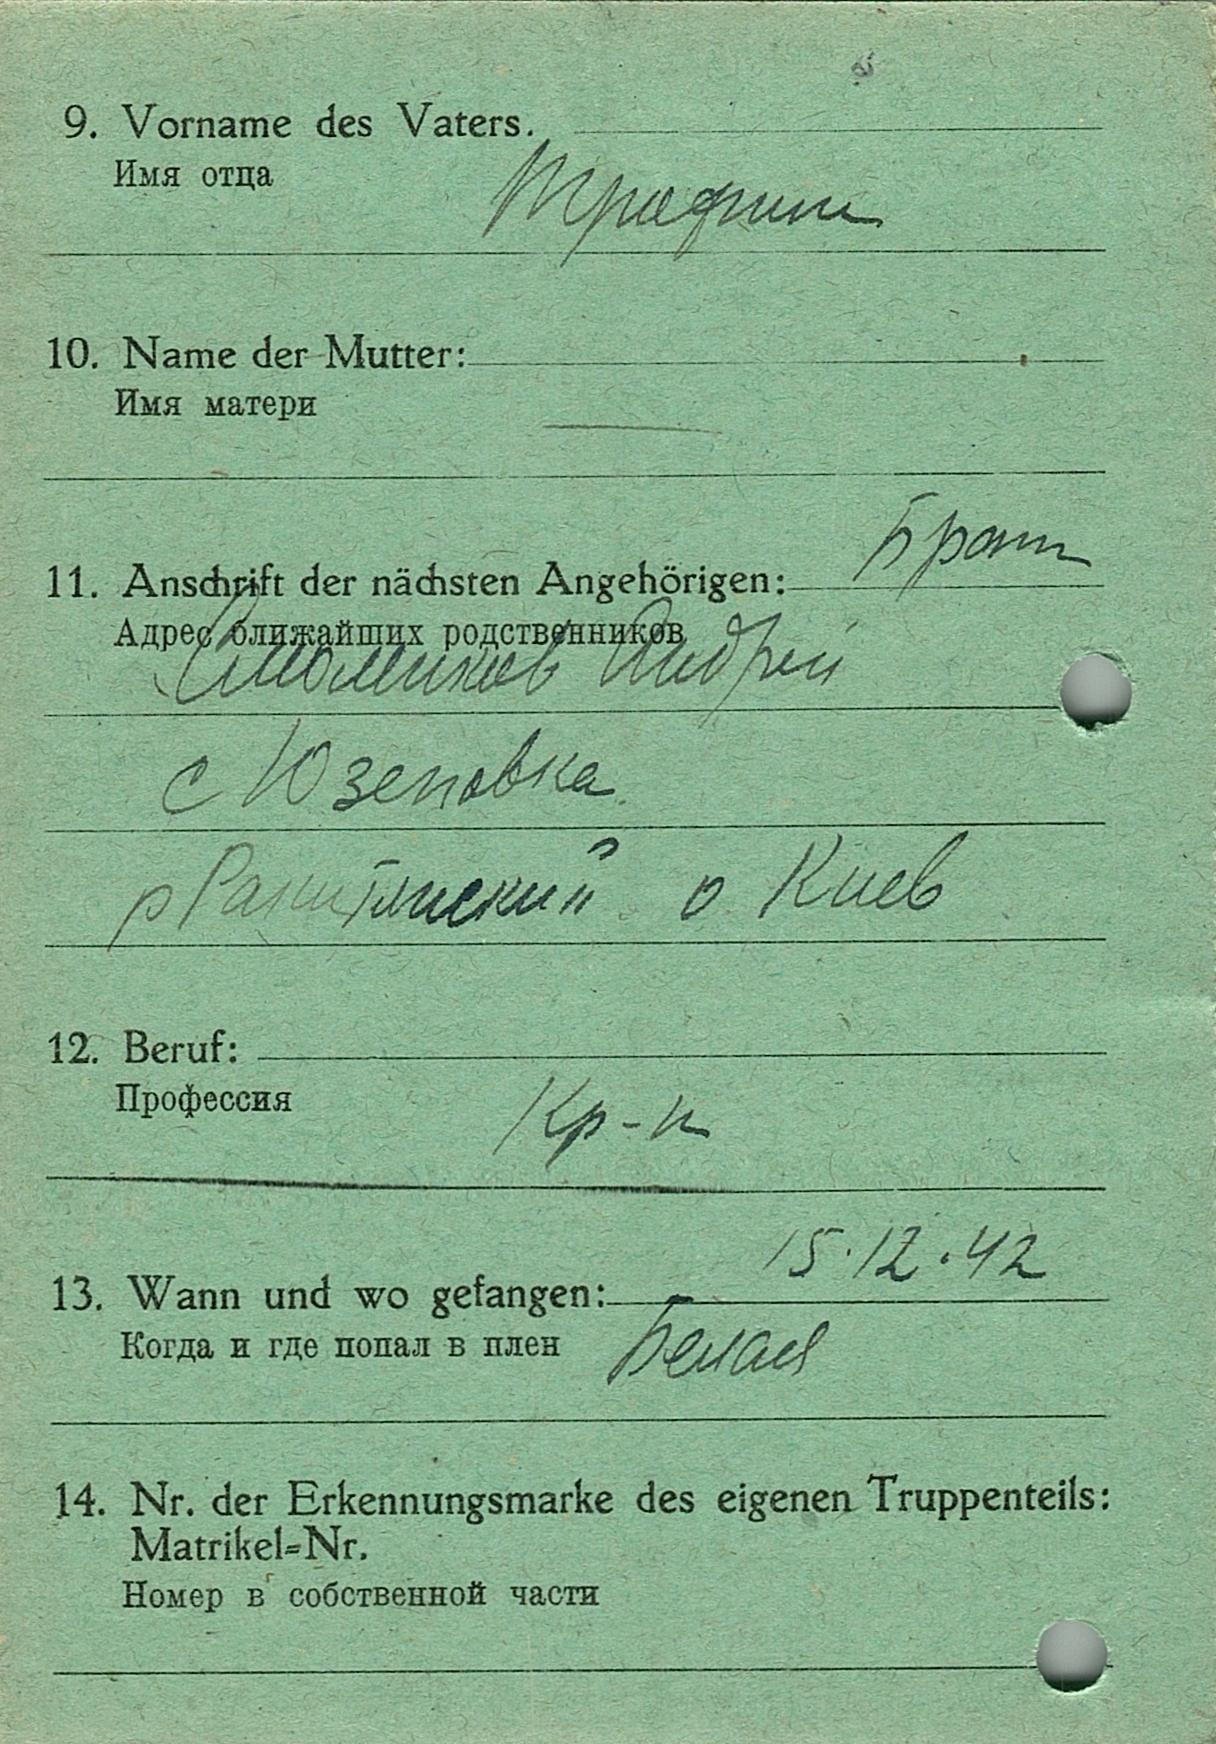 9. Vorname des Vaters.
Имя отца
Трофим
10. Name der Mutter:
Имя матери
—
Брат
11. Anschrift der nächsten Angehörigen:
Адрес ближайших родственников
Андрей
с Юзеповка
р Ракитянский о Киев
12. Beruf:
Профессия
Кр-н
15.12.42
13. Wann und wo gefangen:
Когда и где попал в плен
Белая
14. Nr. der Erkennungsmarke des eigenen Truppenteils:
Matrikel=Nr.
Номер в собственной части